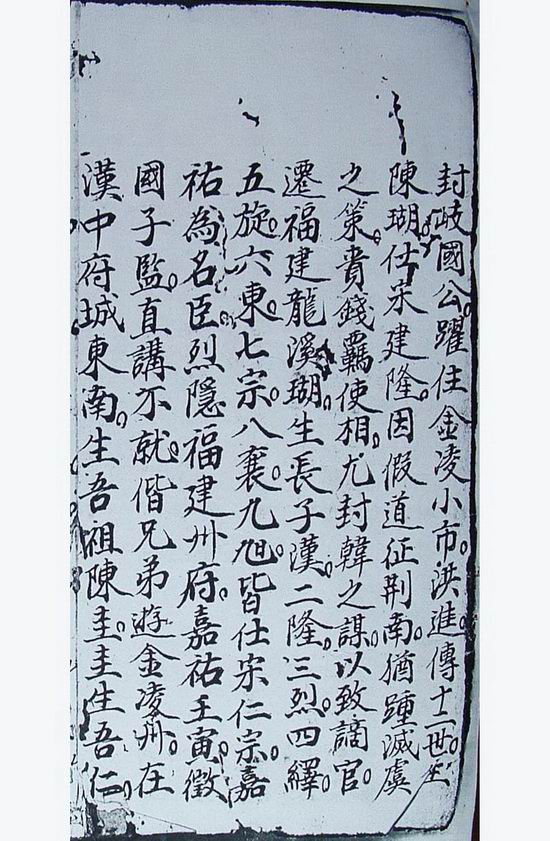 封岐國公。躍住金凌小市。洪進。傳十二世。至
陳瑚。仕宋建隆。因假道征荆南。猶踵滅虞
之策。賫錢覊使相。尤封韓之謀。以致謫官。
遷福建龍溪。瑚。生長子漢。二隆。三烈。四繹。
五旋。六東。七宗。八襄。九旭。皆仕宋仁宗。嘉
祐為名臣。烈隱福建州府。嘉祐壬寅。徵
國子監。直講不就。偕兄弟遊金凌州。在
漢中府城東南。生吾祖陳圭。圭生吾仁。